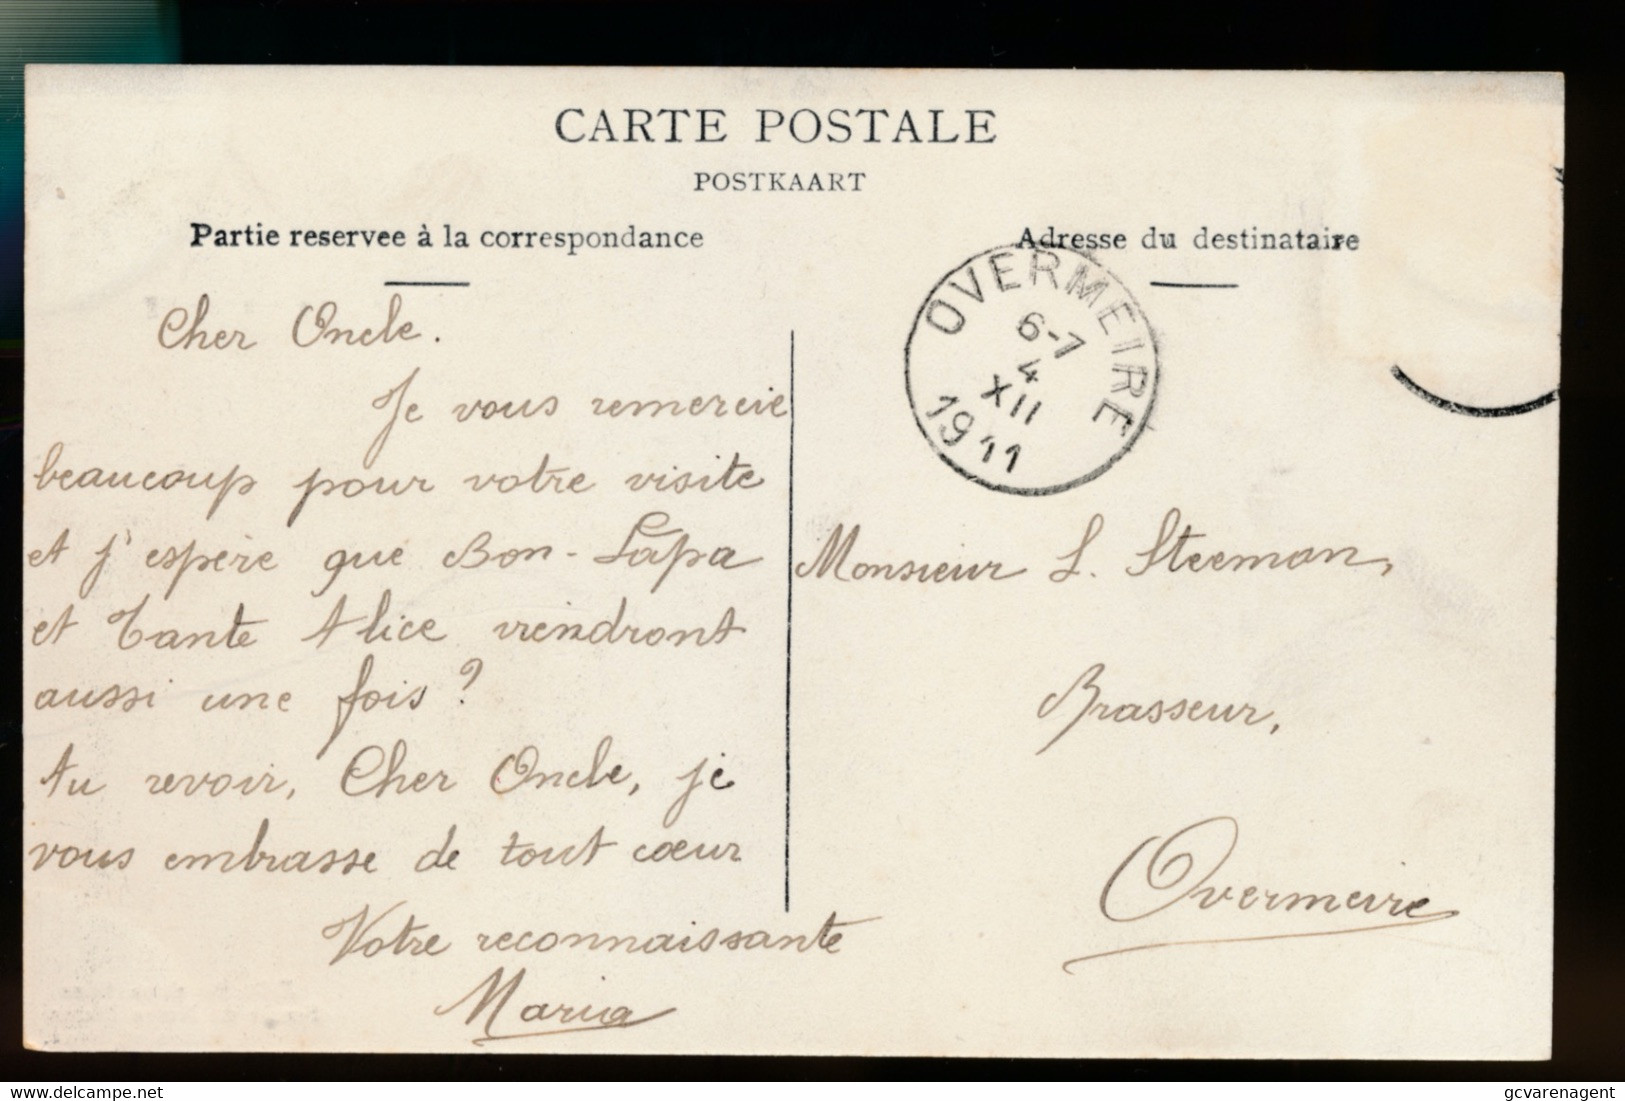 CARTE POSTALE
POSTKAART
Partie reservee à la correspondance
Adresse du destinataire
OVERMEIRE
6-7
4
XII
1911
Cher Oncle.
Je vous remercie
beaucoup pour votre visite
et j'espère que Bon-Papa
et Tante Alice viendront
aussi une fois?
Au revoir, Cher Oncle, je
vous embrasse de tout cœur
Votre reconnaissante
Maria
Monsieur L. Steeman,
Brasseur,
Overmeire
delcampe.net
gcvarenagent